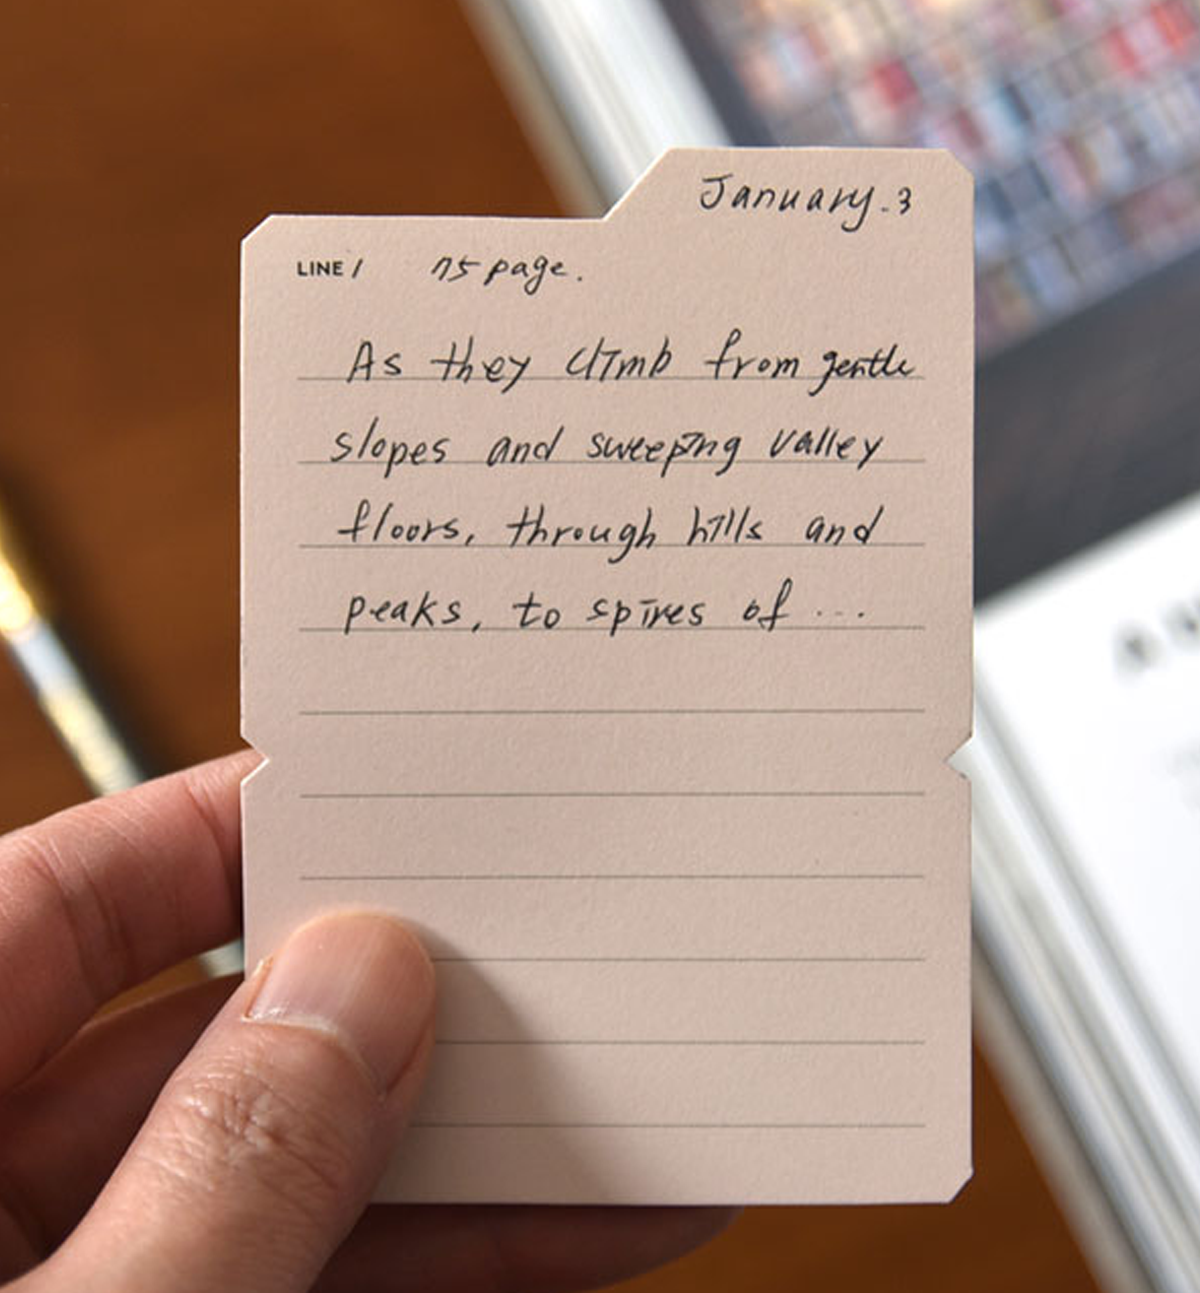 January.3
LINE / 75 page.
As they climb from gentle
slopes and sweeping valley
floors, through hills and
peaks, to spires of ...